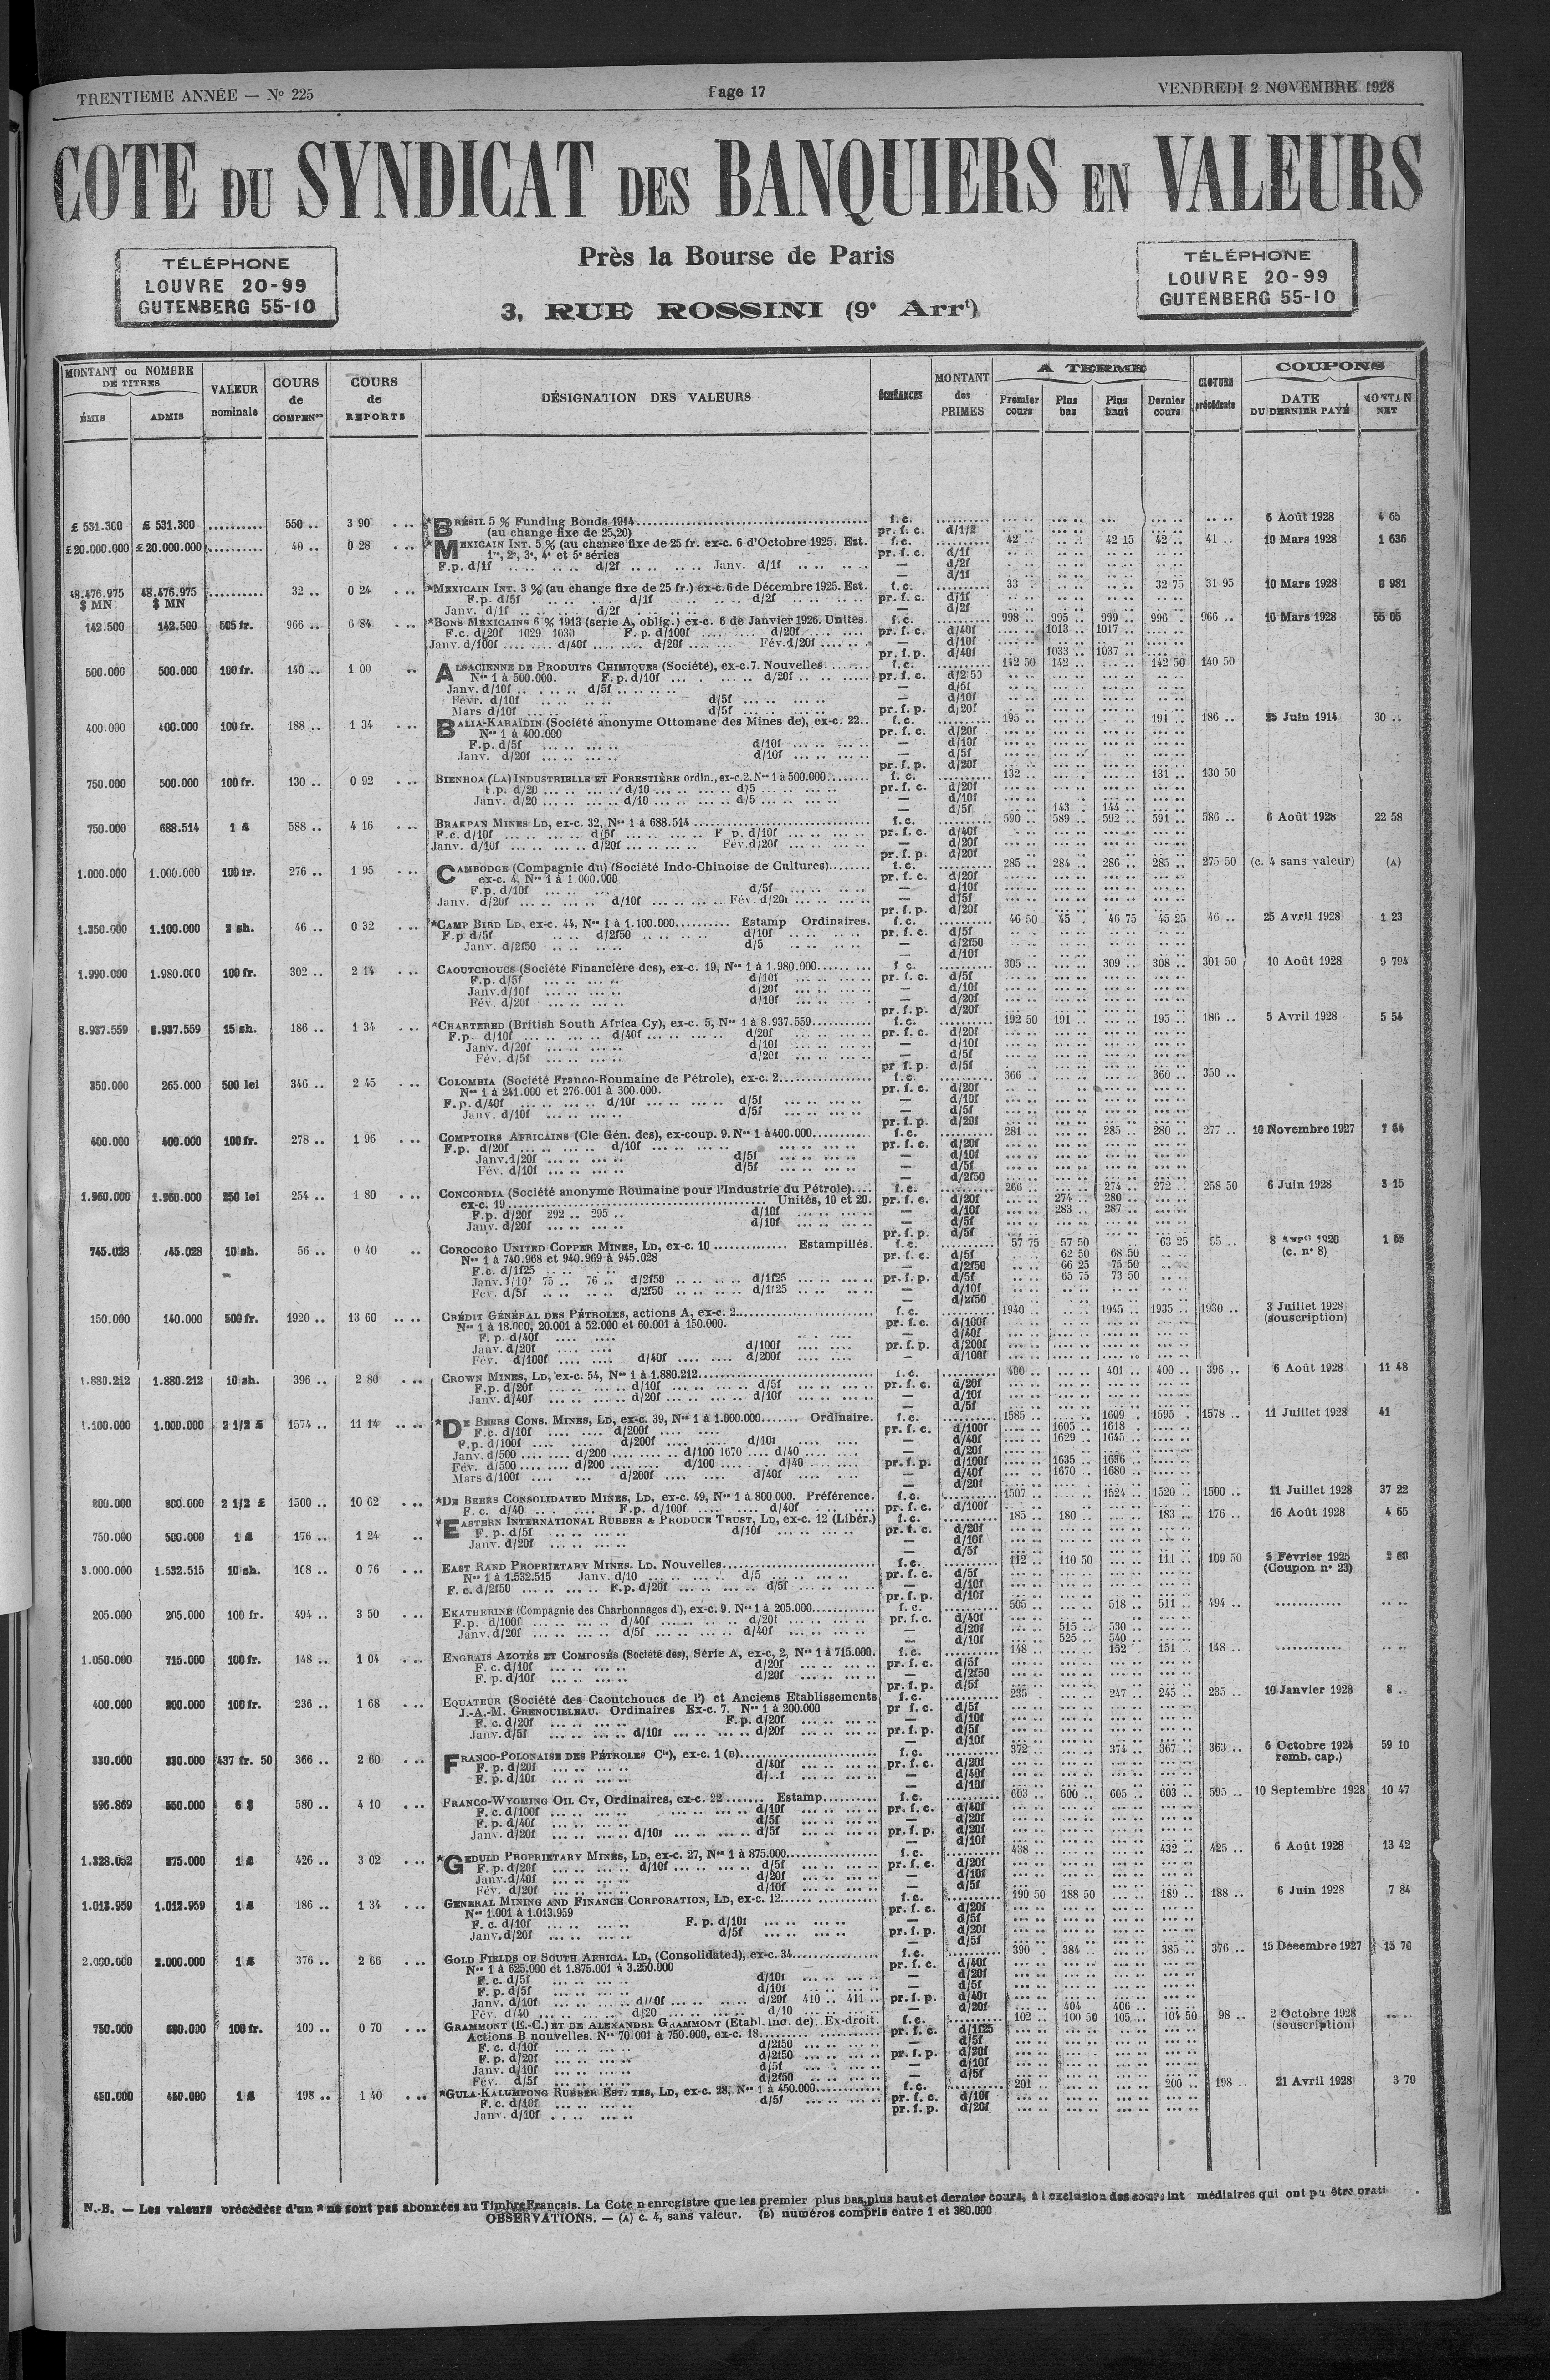 TRENTIEME ANNÉE — N° 225
Page 17
VENDREDI 2 NOVEMBRE 1928
COTE DU SYNDICAT DES BANQUIERS EN VALEURS
TÉLÉPHONE
LOUVRE 20-99
GUTENBERG 55-10
Près la Bourse de Paris
3, RUE ROSSINI (9e Arrt)
TÉLÉPHONE
LOUVRE 20-99
GUTENBERG 55-10
MONTANT ou NOMBRE DE TITRES
ÉMIS ADMIS
VALEUR nominale
COURS de COMPENon
COURS de REPORTS
DÉSIGNATION DES VALEURS
ÉCHÉANCES
MONTANT des PRIMES
A TERME
Premier cours Plus bas Plus haut Dernier cours
CLOTURE précédente
COUPONS
DATE DU DERNIER PAYÉ
MONTAN NET
£ 531.300 £ 531.300 .......... 550 .. 3 90 *BRÉSIL 5 % Funding Bonds 1914 f.c. 6 Août 1928 4 65
(au change fixe de 25,20) pr. f. c. d/1/2
£ 20.000.000 £ 20.000.000 .......... 40 .. 0 28 *MEXICAIN INT. 5 % (au change fixe de 25 fr. ex-c. 6 d'Octobre 1925. Est. f.c. 42 .. 42 15 42 .. 41 .. 10 Mars 1928 1 636
1re, 2e, 3e, 4e et 5e séries pr. f. c. d/1f
F.p. d/1f d/2f Janv. d/1f — d/2f
— d/1f
48.476.975 $ MN 48.476.975 $ MN .......... 32 .. 0 24 *MEXICAIN INT. 3 % (au change fixe de 25 fr.) ex-c. 6 de Décembre 1925. Est. f.c. 33 32 75 31 95 10 Mars 1928 0 981
F.p. d/5f d/1f d/2f pr. f. c. d/1f
Janv. d/1f d/2f — d/2f
142.500 142.500 505 fr. 966 .. 6 84 *BONS MEXICAINS 6 % 1913 (serie A, oblig.) ex-c. 6 de Janvier 1926. Unités. f.c. 998 .. 995 .. 999 .. 996 .. 966 .. 10 Mars 1928 55 05
F.c. d/20f 1029 1030 F. p. d/100f d/20f pr. f. c. d/40f 1013 .. 1017 ..
Janv. d/100f d/40f d/20f Fév. d/20f — d/10f
pr. f. p. d/40f 1033 .. 1037 ..
500.000 500.000 100 fr. 140 .. 1 00 ALSACIENNE DE PRODUITS CHIMIQUES (Société), ex-c. 7. Nouvelles f.c. 142 50 142 .. 142 50 140 50
Nos 1 à 500.000. F.p. d/10f d/20f pr. f. c. d/2f50
Janv. d/10f d/5f — d/5f
Févr. d/10f d/5f — d/10f
Mars d/10f d/5f pr. f. p. d/20f
400.000 400.000 100 fr. 188 .. 1 34 BALIA-KARAÏDIN (Société anonyme Ottomane des Mines de), ex-c. 22.. f.c. 195 .. 191 .. 186 .. 25 Juin 1914 30 ..
Nos 1 à 400.000 pr. f. c. d/20f
F.p. d/5f d/10f — d/10f
Janv. d/20f d/10f — d/5f
pr. f. p. d/20f
750.000 500.000 100 fr. 130 .. 0 92 BIENHOA (LA) INDUSTRIELLE ET FORESTIÈRE ordin., ex-c. 2. Nos 1 à 500.000 f. c. 132 .. 131 .. 130 50
F.p. d/20 d/10 d/5 pr. f. c. d/20f
Janv. d/20 d/10 d/5 — d/10f
— d/5f 143 .. 144 ..
750.000 688.514 1 £ 588 .. 4 16 BRAKPAN MINES LD, ex-c. 32, Nos 1 à 688.514 f.c. 590 .. 589 .. 592 .. 591 .. 586 .. 6 Août 1928 22 58
F.c. d/10f d/5f F p. d/10f pr. f. c. d/40f
Janv. d/10f d/20f Fév. d/20f — d/20f
pr. f. p. d/20f
1.000.000 1.000.000 100 fr. 276 .. 1 95 CAMBODGE (Compagnie du) (Société Indo-Chinoise de Cultures) f.c. 285 .. 284 .. 286 .. 285 .. 275 50 (c. 4 sans valeur) (A)
ex-c. 4, Nos 1 à 1.000.000 pr. f. c. d/20f
F.p. d/10f d/5f — d/10f
Janv. d/20f d/10f Fév. d/20f — d/5f
pr. f. p. d/20f
1.350.000 1.100.000 2 sh. 46 .. 0 32 *CAMP BIRD LD, ex-c. 44, Nos 1 à 1.100.000 Estamp Ordinaires. f.c. 46 50 45 .. 46 75 45 25 46 .. 25 Avril 1928 1 23
F.p d/5f d/2f50 d/10f pr. f. c. d/5f
Janv. d/2f50 d/5 — d/2f50
— d/10f
1.990.000 1.980.000 100 fr. 302 .. 2 14 CAOUTCHOUCS (Société Financière des), ex-c. 19, Nos 1 à 1.980.000 f c. 305 .. 309 .. 308 .. 301 50 10 Août 1928 9 794
F.p. d/5f d/10f pr. f. c. d/5f
Janv. d/10f d/20f — d/10f
Fév. d/20f d/10f — d/20f
pr. f. p. d/20f
8.937.559 8.937.559 15 sh. 186 .. 1 34 *CHARTERED (British South Africa Cy), ex-c. 5, Nos 1 à 8.937.559 f.c. 192 50 191 .. 195 .. 186 .. 5 Avril 1928 5 54
F.p. d/10f d/40f d/20f pr. f. c. d/20f
Janv. d/20f d/10f — d/10f
Fév. d/5f d/20f — d/5f
pr f. p. d/5f
350.000 265.000 500 lei 346 .. 2 45 COLOMBIA (Société Franco-Roumaine de Pétrole), ex-c. 2 f.c. 366 .. 360 .. 350 ..
Nos 1 à 241.000 et 276.001 à 300.000. pr. f. c. d/20f
F.p. d/40f d/10f d/5f — d/10f
Janv. d/10f d/5f — d/5f
pr. f. p. d/20f
400.000 400.000 100 fr. 278 .. 1 96 COMPTOIRS AFRICAINS (Cie Gén. des), ex-coup. 9. Nos 1 à 400.000 f.c. 281 .. 285 .. 280 .. 277 .. 10 Novembre 1927 7 64
F.p. d/20f d/10f pr. f. c. d/20f
Janv. d/20f d/5f — d/10f
Fév. d/10f d/5f — d/5f
— d/2f50
1.960.000 1.960.000 250 lei 254 .. 1 80 CONCORDIA (Société anonyme Roumaine pour l'Industrie du Pétrole) f.c. 266 .. 274 .. 272 .. 258 50 6 Juin 1928 3 15
ex-c. 19 Unités, 10 et 20. pr. f. c. d/20f 274 .. 280 ..
F.p. d/20f 292 .. 295 .. d/10f — d/10f 283 .. 287 ..
Janv. d/20f d/10f — d/5f
pr. f. p. d/5f
745.028 745.028 10 sh. 56 .. 0 40 COROCORO UNITED COPPER MINES, LD, ex-c. 10 Estampillés. f.c. 57 75 57 50 63 25 55 .. 8 Avril 1920 (c. n° 8) 1 65
Nos 1 à 740.968 et 940.969 à 945.028 pr. f. c. d/5f 62 50 68 50
F.c. d/1f25 — d/2f50 66 25 75 50
Janv. d/10f 75 .. 76 .. d/2f50 d/1f25 pr. f. p. d/5f 65 75 73 50
Fev. d/5f d/2f50 d/1f25 — d/10f
— d/2f50
150.000 140.000 500 fr. 1920 .. 13 60 CRÉDIT GÉNÉRAL DES PÉTROLES, actions A, ex-c. 2 f. c. 1940 .. 1945 .. 1935 .. 1930 .. 3 Juillet 1928 (souscription)
Nos 1 à 18.000, 20.001 à 52.000 et 60.001 à 150.000. pr. f. c. d/100f
F. p. d/40f — d/40f
Janv. d/20f d/100f pr. f. p. d/200f
Fév. d/100f d/40f d/200f — d/100f
1.880.212 1.880.212 10 sh. 396 .. 2 80 CROWN MINES, LD, ex-c. 54, Nos 1 à 1.880.212 f.c. 400 .. 401 .. 400 .. 396 .. 6 Août 1928 11 48
F.p. d/20f d/10f d/5f pr. f. c. d/20f
Janv. d/40f d/20f d/10f — d/10f
— d/5f
1.100.000 1.000.000 2 1/2 £ 1574 .. 11 14 *DE BEERS CONS. MINES, LD, ex-c. 39, Nos 1 à 1.000.000 Ordinaire. f.c. 1585 .. 1609 .. 1595 .. 1578 .. 11 Juillet 1928 41
F.c. d/10f d/200f pr. f. c. d/100f 1605 .. 1618 ..
F.p. d/100f d/200f d/10f — d/40f 1629 .. 1645 ..
Janv. d/500 d/200 d/100 1670 d/40 — d/20f
Fév. d/500 d/200 d/100 d/40 pr. f. p. d/100f 1635 .. 1636 ..
Mars d/100f d/200f d/40f — d/40f 1670 .. 1680 ..
— d/20f
800.000 800.000 2 1/2 £ 1500 .. 10 62 *DE BEERS CONSOLIDATED MINES, LD, ex-c. 49, Nos 1 à 800.000. Préférence. f.c. 1507 .. 1524 .. 1520 .. 1500 .. 11 Juillet 1928 37 22
F. c. d/40 F.p. d/100f d/40f pr. f. c. d/100f
750.000 500.000 1 £ 176 .. 1 24 *EASTERN INTERNATIONAL RUBBER & PRODUCE TRUST, LD, ex-c. 12 (Libér.) f.c. 185 .. 180 .. 183 .. 176 .. 16 Août 1928 4 65
F. p. d/5f d/10f pr. f. c. d/20f
Janv. d/20f — d/10f
— d/5f
3.000.000 1.532.515 10 sh. 108 .. 0 76 EAST RAND PROPRIETARY MINES. LD, Nouvelles f.c. 112 .. 110 50 111 .. 109 50 5 Février 1925 (Coupon n° 23) 2 60
Nos 1 à 1.532.515 Janv. d/10 d/5 pr. f. c. d/5f
F. c. d/2f50 F.p. d/20f d/5f — d/10f
pr. f. p. d/10f
205.000 205.000 100 fr. 494 .. 3 50 EKATHERINE (Compagnie des Charbonnages d'), ex-c. 9. Nos 1 à 205.000 f. c. 505 .. 518 .. 511 .. 494 ..
F.p. d/100f d/40f d/20f pr. f. c. d/40f
Janv. d/20f d/5f d/40f — d/20f 515 .. 530 ..
— d/10f 525 .. 540 ..
1.050.000 715.000 100 fr. 148 .. 1 04 ENGRAIS AZOTÉS ET COMPOSÉS (Société des), Série A, ex-c, 2, Nos 1 à 715.000. f.c. 148 .. 152 .. 151 .. 148 ..
F. c. d/10f d/20f pr. f. c. d/5f
F. p. d/10f d/20f — d/2f50
pr. f. p. d/5f
400.000 200.000 100 fr. 236 .. 1 68 EQUATEUR (Société des Caoutchoucs de l') et Anciens Etablissements f. c. 235 .. 247 .. 245 .. 235 .. 10 Janvier 1928 8 ..
J.-A.-M. GRENOUILLEAU. Ordinaires Ex-c. 7. Nos 1 à 200.000 pr f. c. d/5f
F. c. d/20f F.p. d/20f — d/10f
Janv. d/5f d/10f d/20f pr. f. p. d/5f
— d/10f
330.000 330.000 437 fr. 50 366 .. 2 60 FRANCO-POLONAISE DES PÉTROLES Cie), ex-c. 1 (B) f.c. 372 .. 374 .. 367 .. 363 .. 6 Octobre 1924 remb. cap.) 59 10
F. p. d/20f d/40f pr. f. c. d/20f
F. p. d/10f — d/40f
— d/10f
596.869 550.000 5 $ 580 .. 4 10 FRANCO-WYOMING OIL CY, Ordinaires, ex-c. 22 Estamp f.c. 603 .. 600 .. 605 .. 603 .. 595 .. 10 Septembre 1928 10 47
F. c. d/100f d/10f pr. f. c. d/40f
F. p. d/40f d/5f — d/20f
Janv. d/20f d/10f d/5f pr. f. p. d/20f
— d/10f
1.328.052 875.000 1 £ 426 .. 3 02 *GEDULD PROPRIETARY MINES, LD, ex-c. 27, Nos 1 à 875.000 f.c. 438 .. 432 .. 425 .. 6 Août 1928 13 42
F. p. d/20f d/10f d/5f pr. f. c. d/20f
Janv. d/40f d/20f — d/10f
Fév. d/20f d/10f — d/5f
1.013.959 1.012.959 1 £ 186 .. 1 34 GENERAL MINING AND FINANCE CORPORATION, LD, ex-c. 12 f.c. 190 50 188 50 189 .. 188 .. 6 Juin 1928 7 84
Nos 1.001 à 1.013.959 pr. f. c. d/20f
F. c. d/10f F. p. d/10f — d/5f
Janv. d/20f d/5f pr. f. p. d/20f
— d/5f
2.000.000 2.000.000 1 £ 376 .. 2 66 GOLD FIELDS OF SOUTH AFRICA. LD, (Consolidated), ex-c. 34 f.c. 390 . 384 .. 385 .. 376 .. 15 Décembre 1927 15 70
Nos 1 à 625.000 et 1.875.001 à 3.250.000 pr. f. c. d/40f
F. c. d/5f d/10f — d/20f
F. p. d/5f d/10f — d/5f
Janv. d/10f d/20f 410 .. 411 .. pr. f. p. d/40f
Fév. d/40 d/20 d/10 — d/20f 404 .. 406 ..
750.000 680.000 100 fr. 100 .. 0 70 GRAMMONT (E.-C.) ET DE ALEXANDRE GRAMMONT (Etabl. ind. de). Ex-droit. f.c. 102 .. 100 50 105 .. 104 50 98 .. 2 Octobre 1928 (souscription)
Actions B nouvelles. Nos 70.001 à 750.000, ex-c. 18 pr. f. c. d/1f25
F. c. d/10f d/2f50 — d/5f
F. p. d/20f d/2f50 pr. f. p. d/20f
Janv. d/10f d/5f — d/10f
Fév. d/5f d/2f50 — d/5f
450.000 450.000 1 £ 198 .. 1 40 *GULA-KALUMPONG RUBBER ESTATES, LD, ex-c. 28, Nos 1 à 450.000 f.c. 201 .. 200 .. 198 .. 21 Avril 1928 3 70
F. c. d/10f d/5f pr. f. c. d/10f
Janv. d/10f pr. f. p. d/20f
N.-B. — Les valeurs précédées d'un * ne sont pas abonnées au Timbre Français. La Cote n enregistre que les premier plus bas, plus haut et dernier cours, à l exclusion des cours int médiaires qui ont pu être prati
OBSERVATIONS. — (A) c. 4, sans valeur. (B) numéros compris entre 1 et 380.000